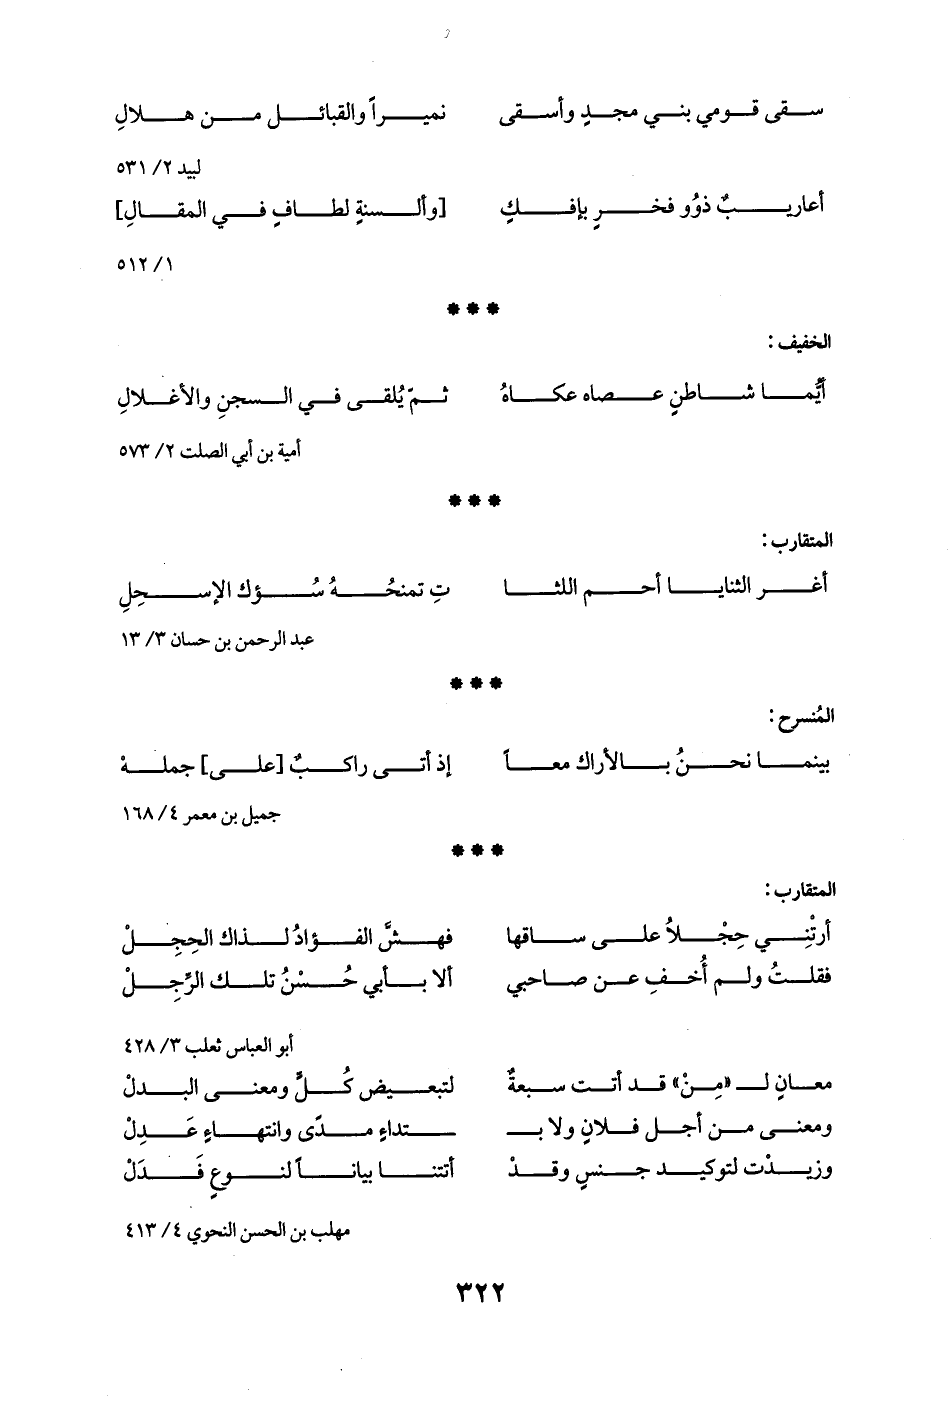 سقى قومي بني مجدٍ وأسقى نميراً والقبائل من هلالِ
لبيد ٢/ ٥٣١
أعاريبٌ ذوُو فخرٍ بإفكٍ [وألسنةٍ لطافٍ في المقالِ]
١/ ٥١٢
***
الخفيف:
أيُّما شاطنٍ عصاه عكاهُ ثمّ يُلقى في السجنِ والأغلالِ
أمية بن أبي الصلت ٢/ ٥٧٣
***
المتقارب:
أغر الثنايا أحم اللثا تِ تمنحُهُ سُؤك الإسحِلِ
عبد الرحمن بن حسان ٣/ ١٣
***
المُنسرح:
بينما نحنُ بالأراك معاً إذ أتى راكبٌ [على] جملهْ
جميل بن معمر ٤/ ١٦٨
***
المتقارب:
أرتْنِي حِجْلاً على ساقها فهشَّ الفؤادُ لذاك الحِجِلْ
فقلتُ ولم أُخفِ عن صاحبي ألا بأبي حُسْنُ تلك الرِّجِلْ
أبو العباس ثعلب ٣/ ٤٢٨
معانٍ لـ «مِنْ» قد أتت سبعةٌ لتبعيض كُلٍّ ومعنى البدلْ
ومعنى من أجل فلانٍ ولا بـ ـتداءٍ مدًى وانتهاءٍ عَدِلْ
وزيدْت لتوكيد جنسٍ وقدْ أتتنا بياناً لنوعٍ فَدَلْ
مهلب بن الحسن النحوي ٤/ ٤١٣
٣٢٢